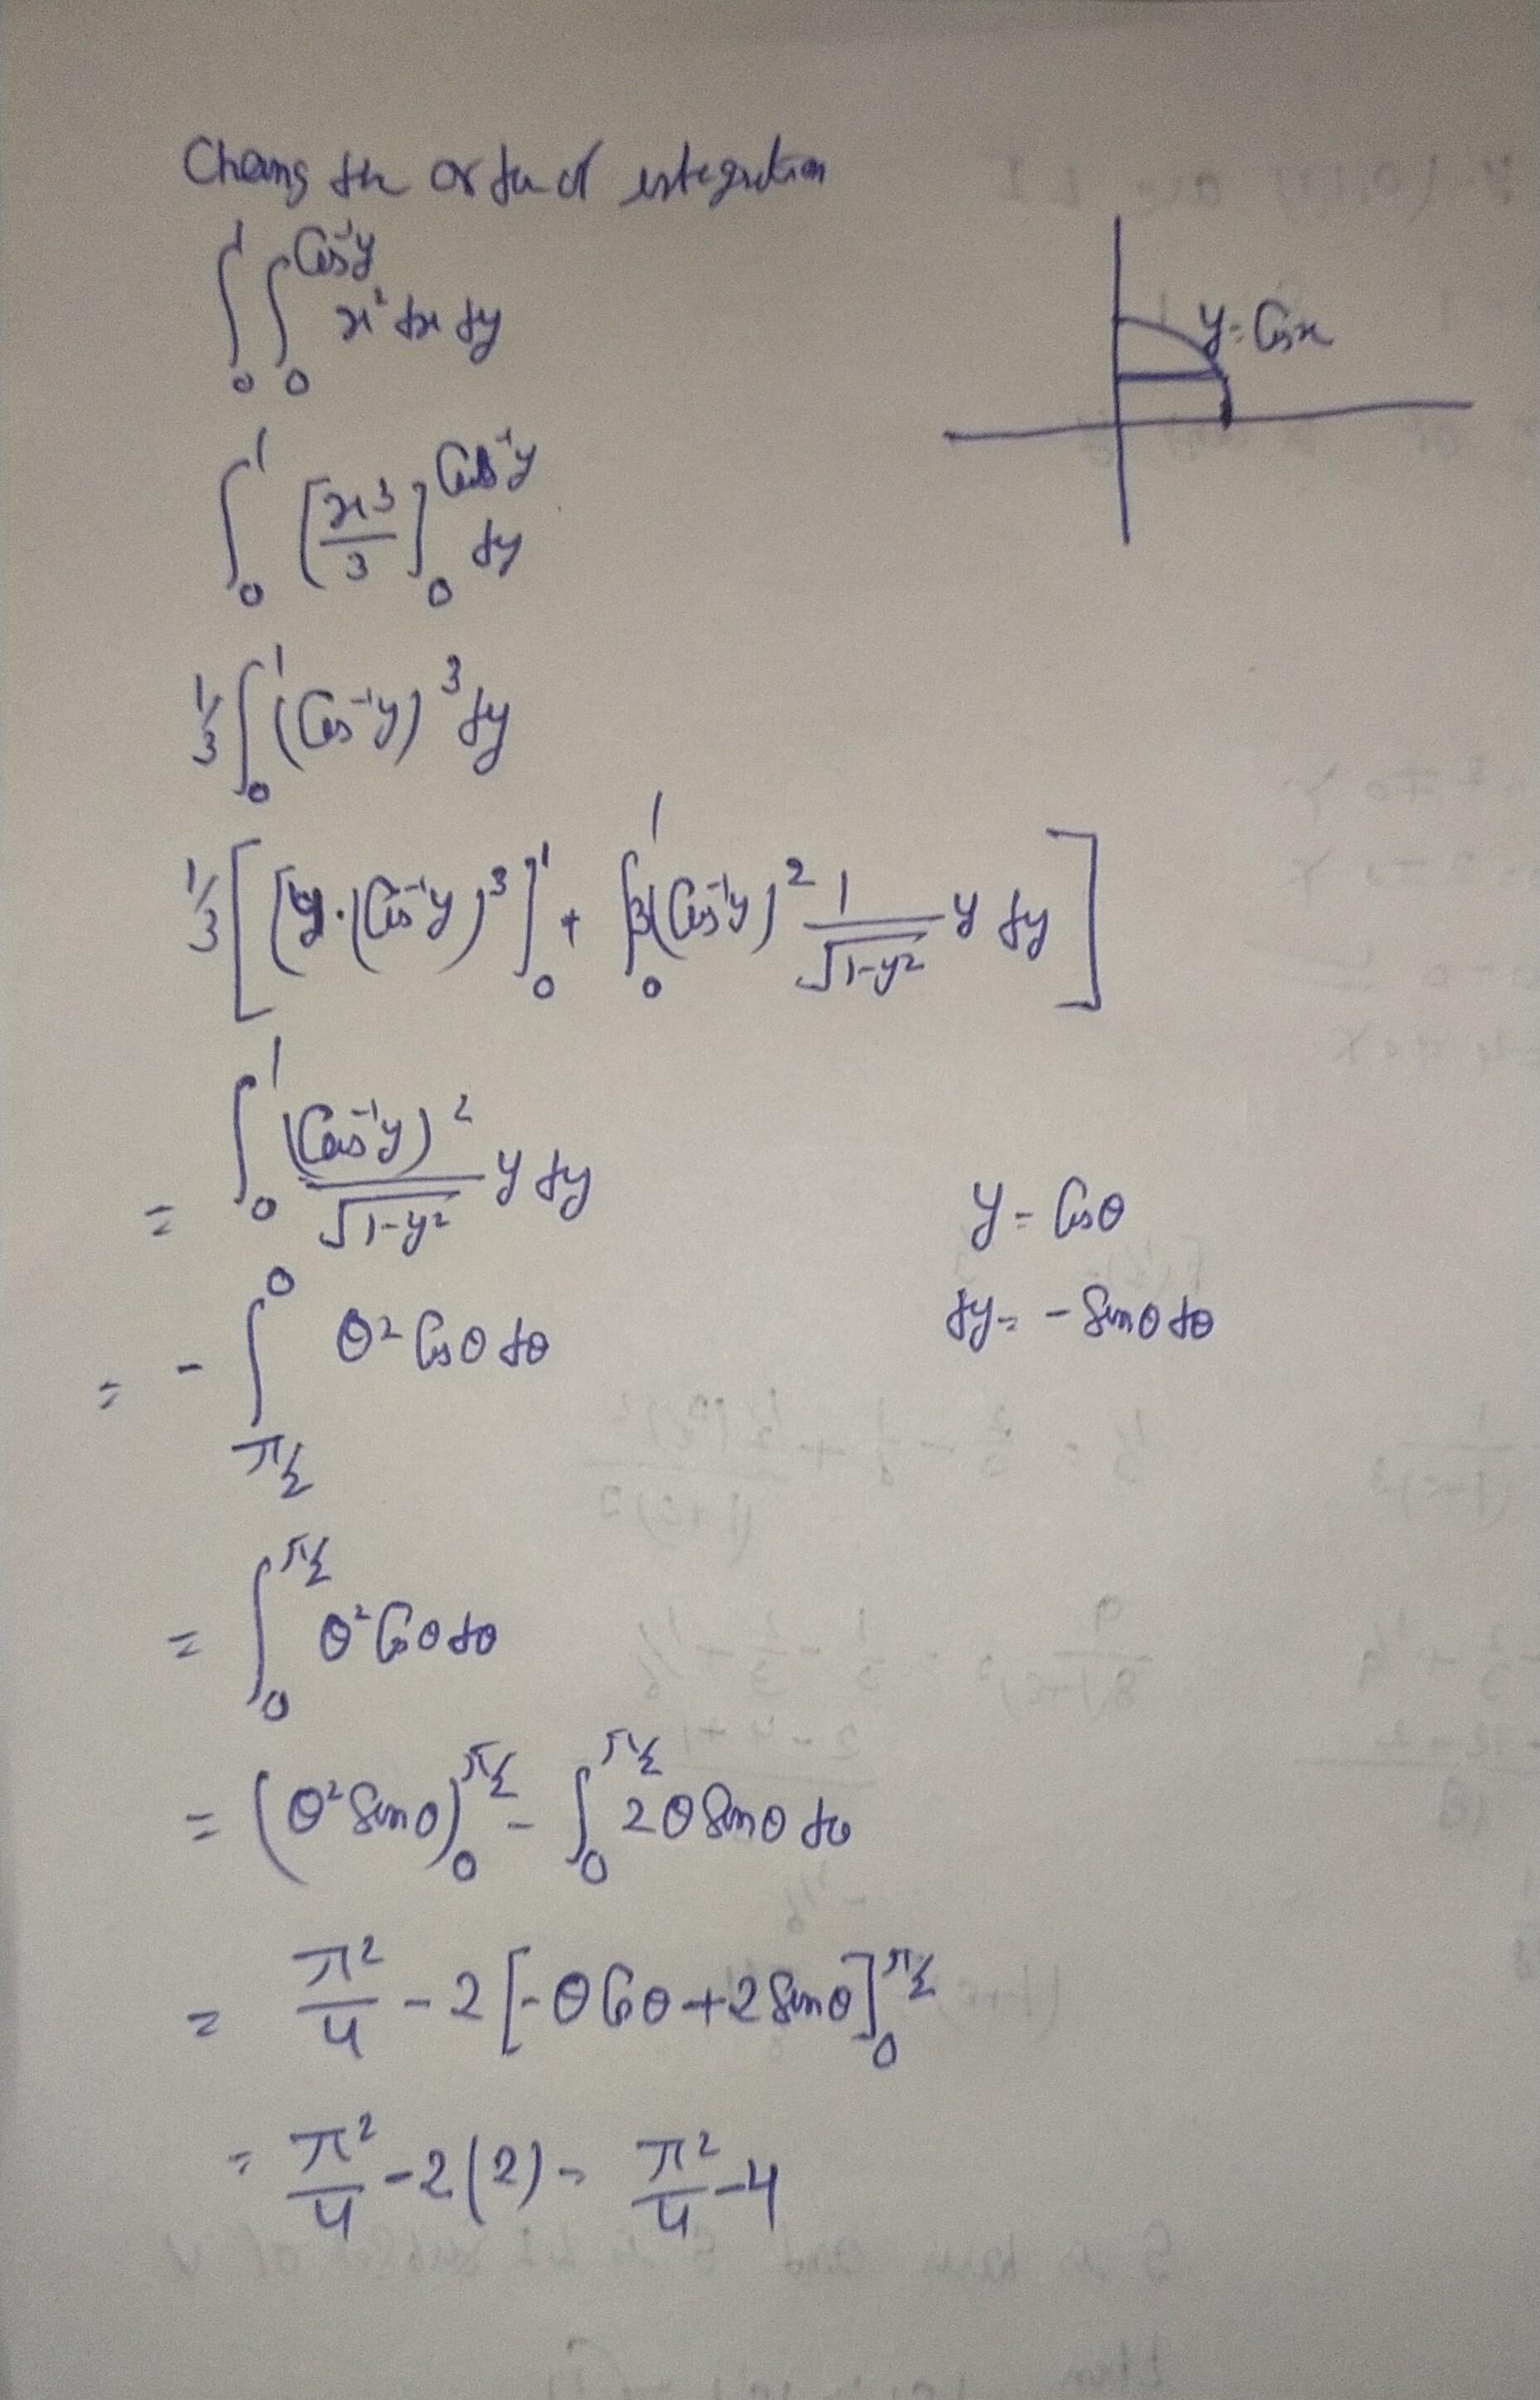 Chang the order of integration
∫₀¹ ∫₀^{Cos⁻¹y} x² dx dy
y = Cos x
∫₀¹ [x³/3]₀^{Cos⁻¹y} dy
1/3 ∫₀¹ (Cos⁻¹y)³ dy
1/3 [ [y·(Cos⁻¹y)³]₀¹ + ∫₀¹ 3(Cos⁻¹y)² 1/√(1-y²) y dy ]
= ∫₀¹ (Cos⁻¹y)²/√(1-y²) y dy
y = Cos θ
= - ∫_{π/2}^0 θ² Cos θ dθ
dy = - Sin θ dθ
= ∫₀^{π/2} θ² Cos θ dθ
= (θ² Sin θ)₀^{π/2} - ∫₀^{π/2} 2θ Sin θ dθ
= π²/4 - 2 [-θ Cos θ + 2 Sin θ]₀^{π/2}
= π²/4 - 2(2) = π²/4 - 4